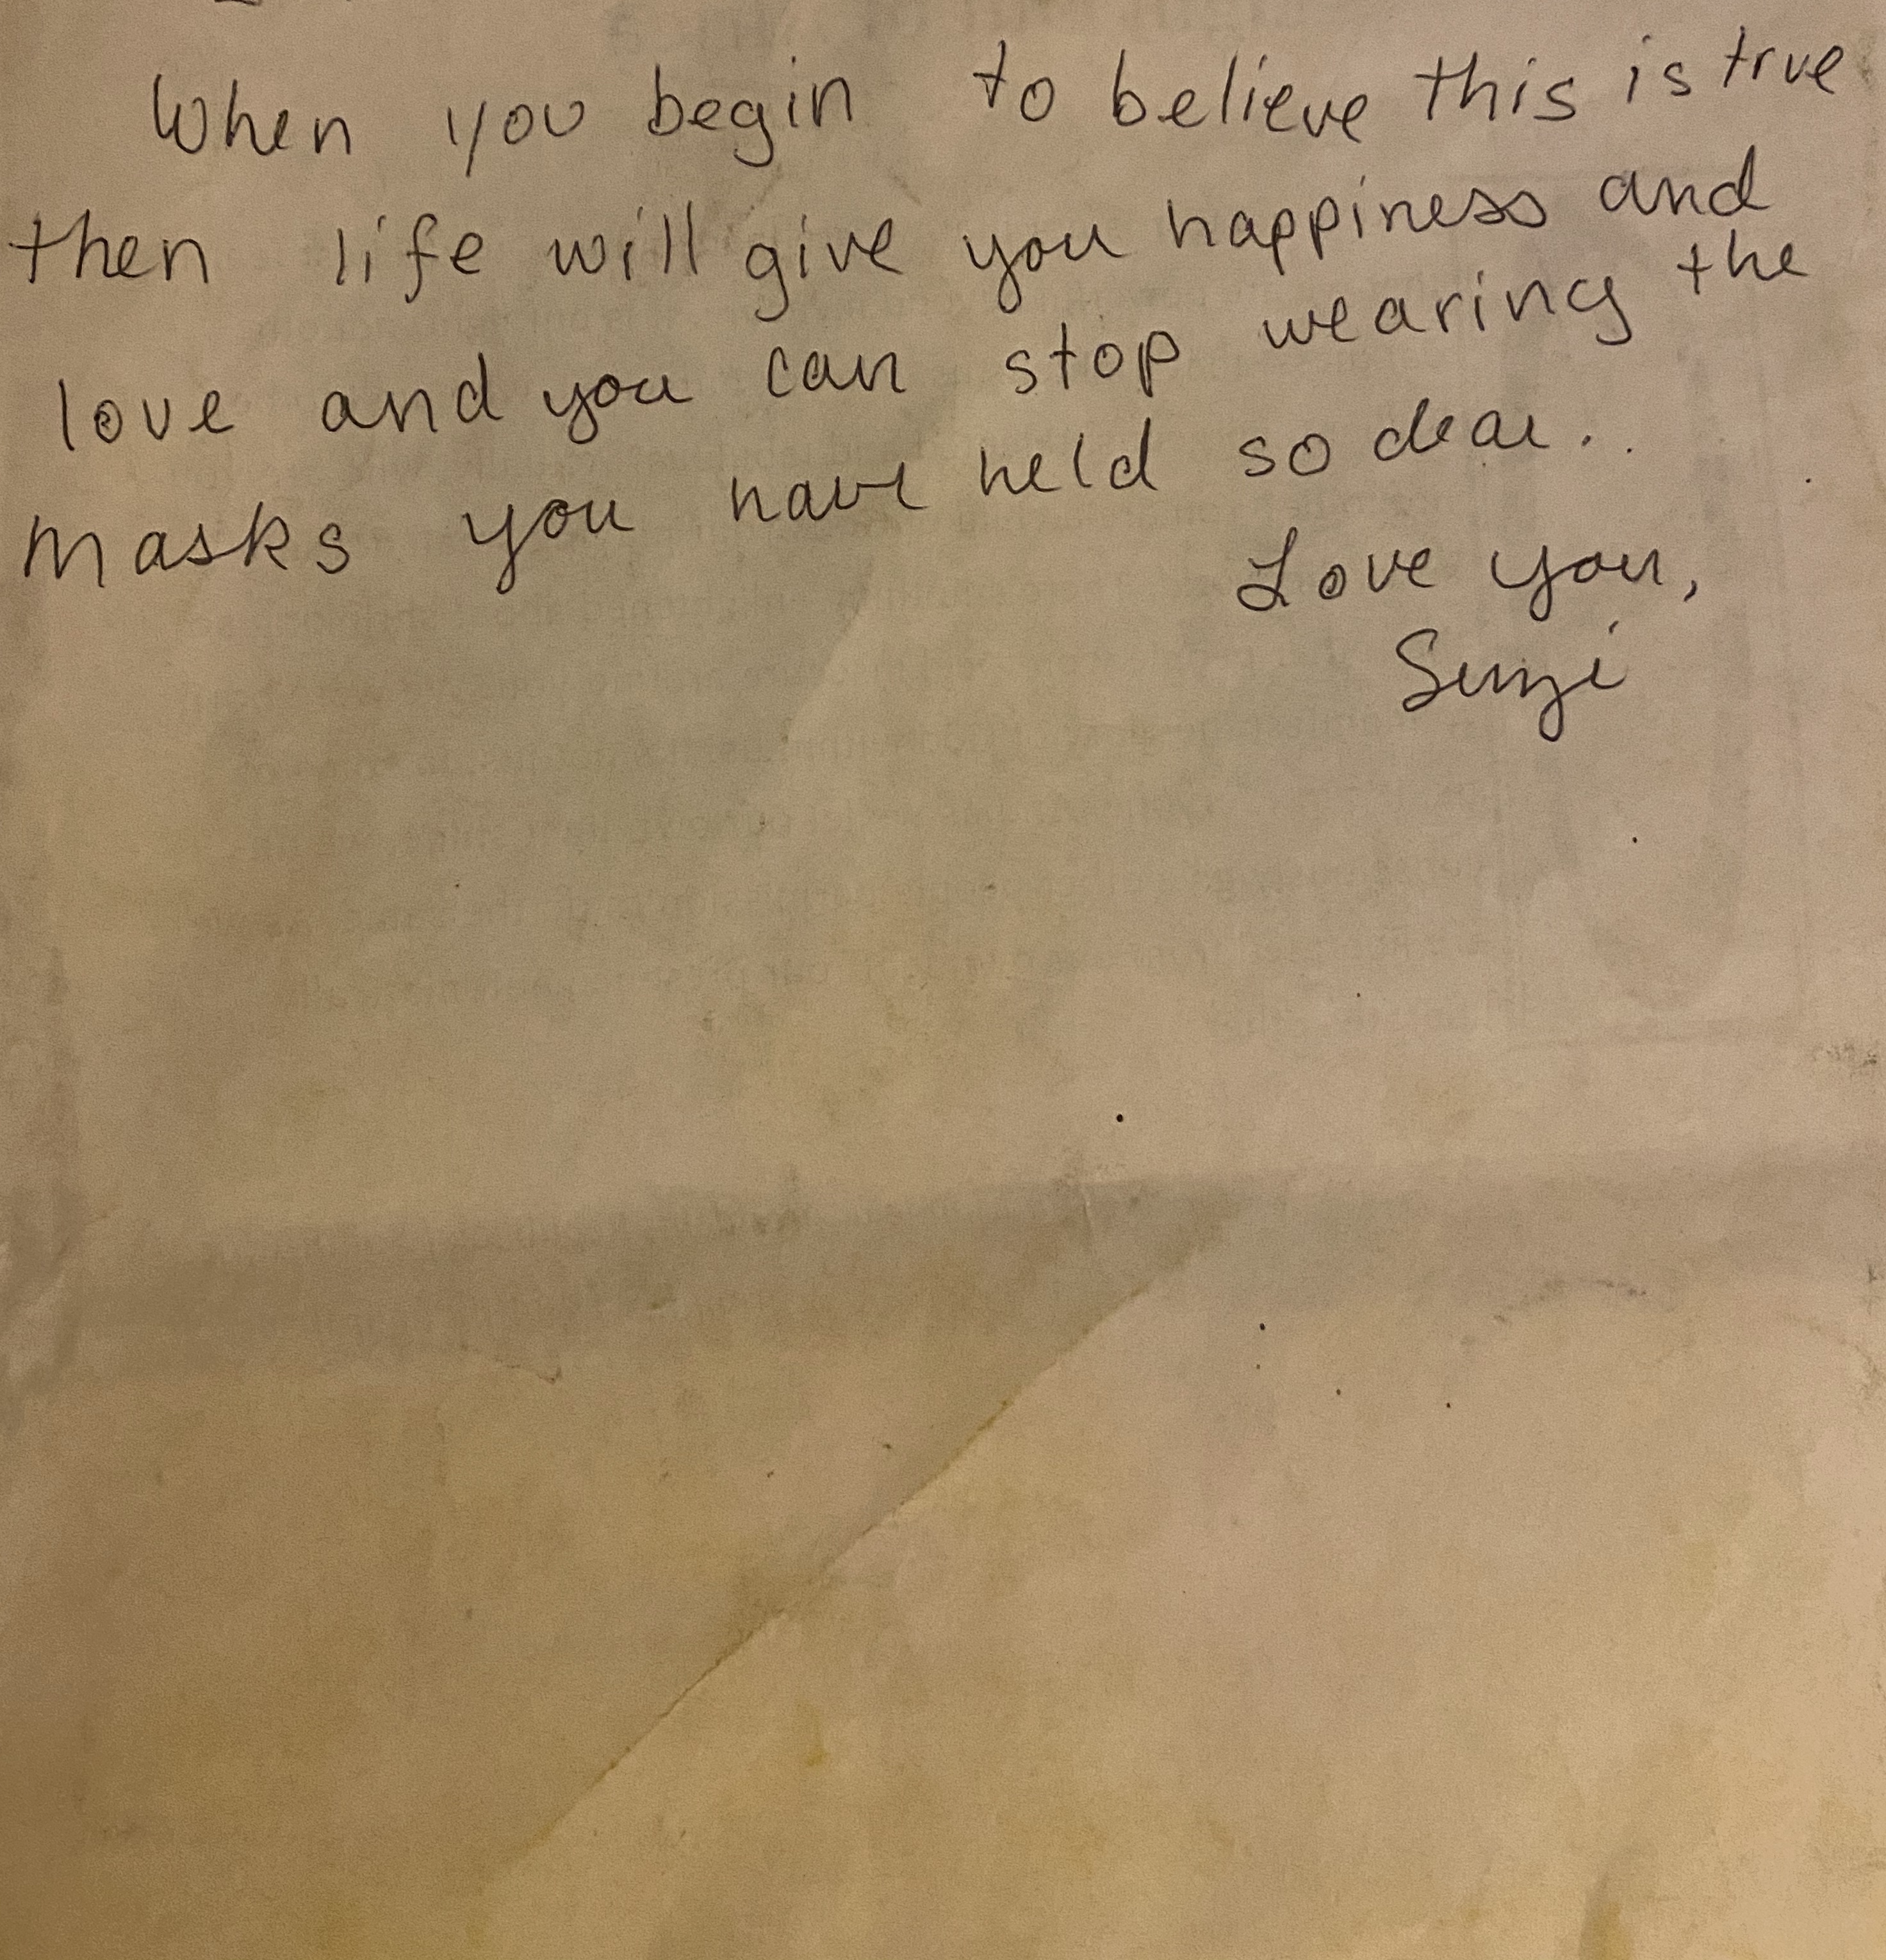 When you begin to believe this is true
then life will give you happiness and
love and you can stop wearing the
masks you have held so dear..
Love you,
Suzi